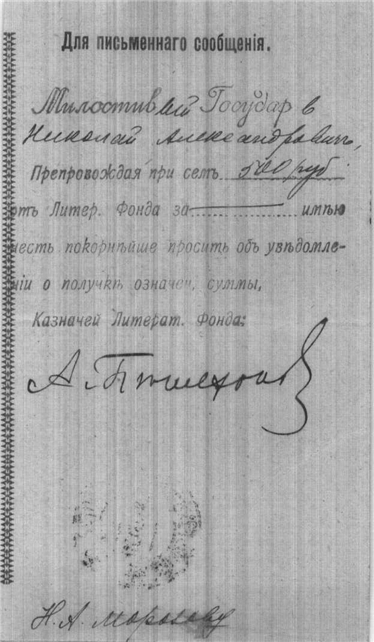 Для письменнаго сообщенія.
Милостивый Государь
Николай Александровичъ,
Препровождая при семъ 500 руб
отъ Литер. Фонда за имѣю
честь покорнѣйше просить объ увѣдомле-
ніи о получкѣ означен. суммы,
Казначей Литерат. Фонда:
А. Пѣшехонов
Н. А. Морозову